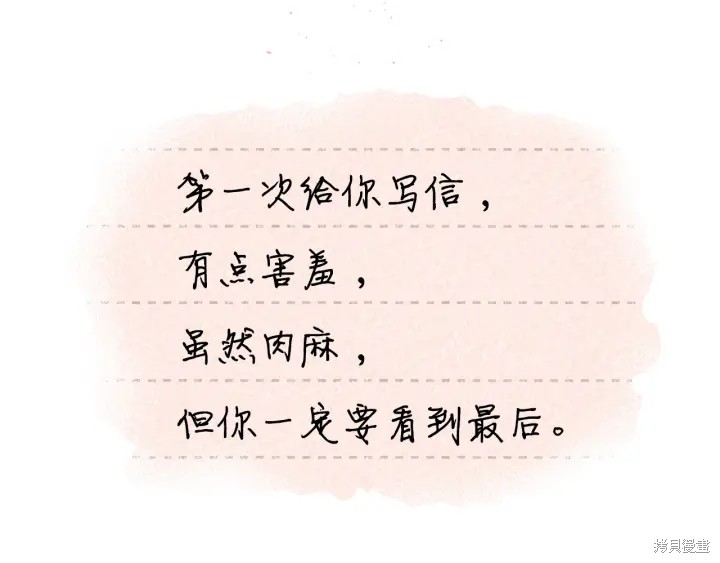 第一次给你写信，
有点害羞，
虽然肉麻，
但你一定要看到最后。
拷貝漫畫